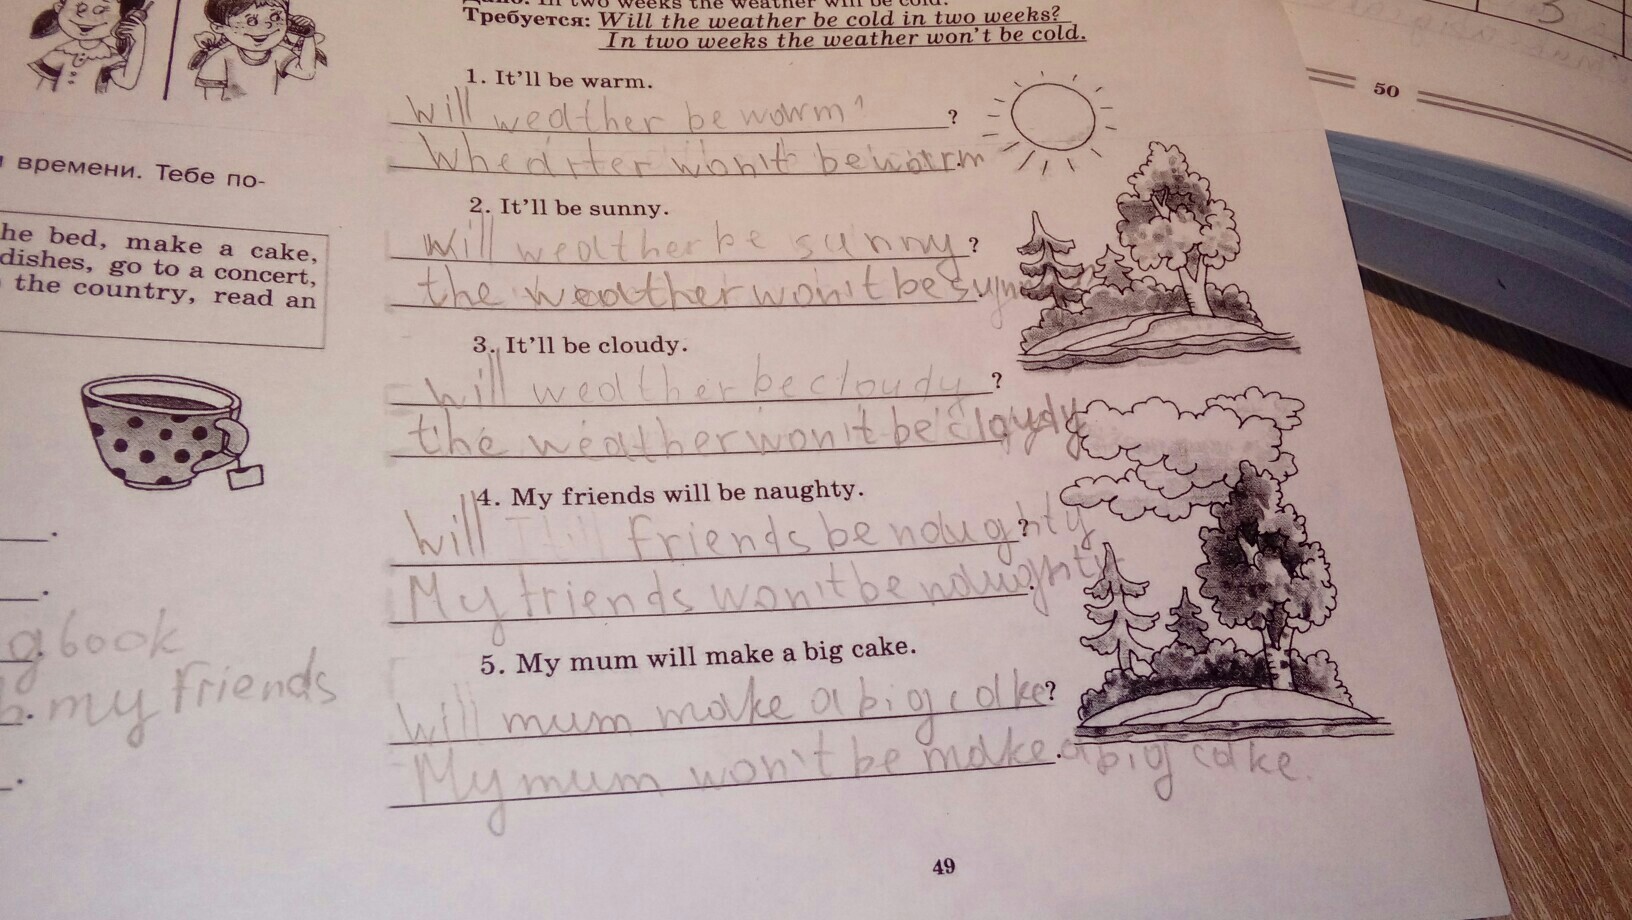 Требуется: Will the weather be cold in two weeks?
In two weeks the weather won't be cold.
1. It'll be warm.
Will weather be warm ?
Whearter won't be warm
2. It'll be sunny.
Will weather be sunny ?
the weather won't be sunny
3. It'll be cloudy.
Will weather be cloudy ?
the weather won't be cloudy
4. My friends will be naughty.
Will friends be naughty ?
My friends won't be naughty.
5. My mum will make a big cake.
Will mum make a big cake?
My mum won't be make a big cake.
49
времени. Тебе по-
he bed, make a cake,
dishes, go to a concert,
the country, read an
book
my friends
50